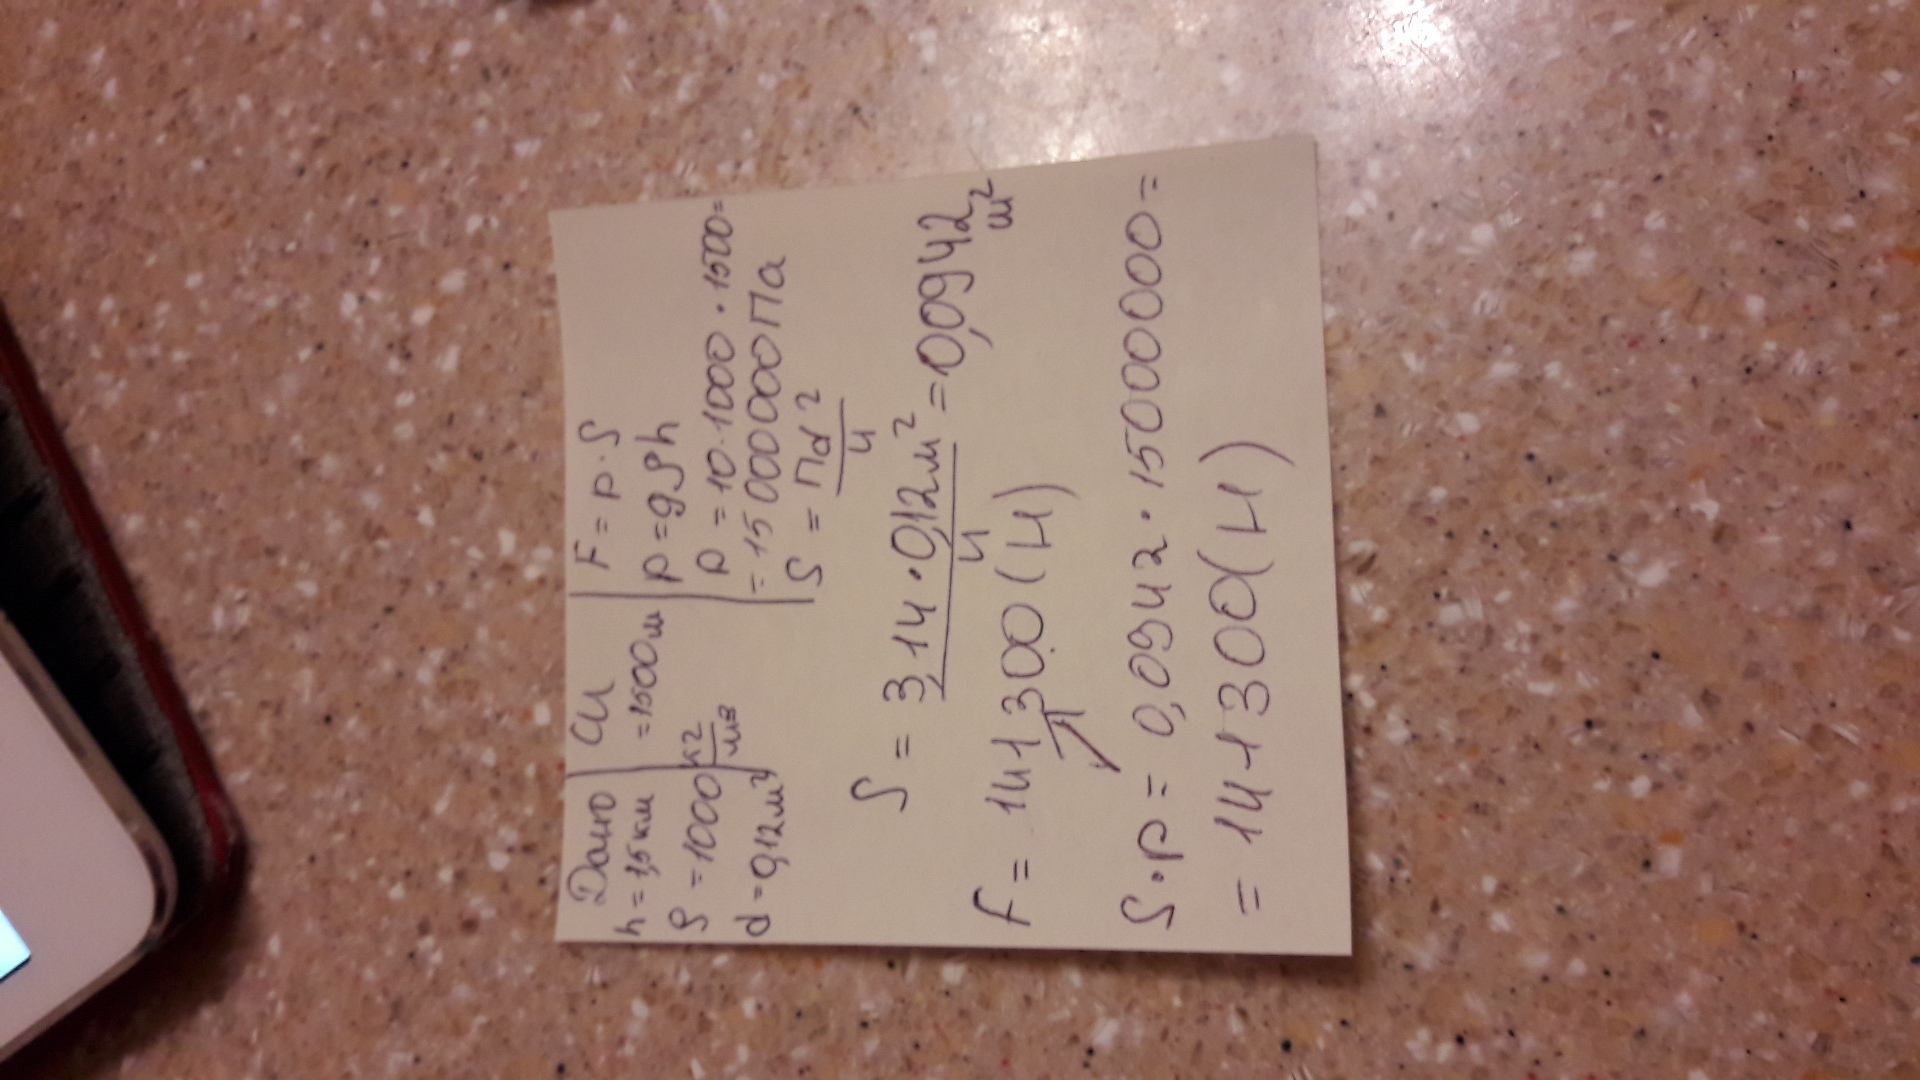 Дано | СИ | F = p · S
h = 1,5 км | = 1500 м | p = gρh
ρ = 1000 кг/м³ | p = 10 · 1000 · 1500 =
d = 0,12 м² | = 15 000 000 Па
S = Пd²/4
S = 3,14 · 0,12 м²/4 = 0,0942 м²
F = 141300 (Н)
S · p = 0,0942 · 15000000 =
= 141300 (Н)